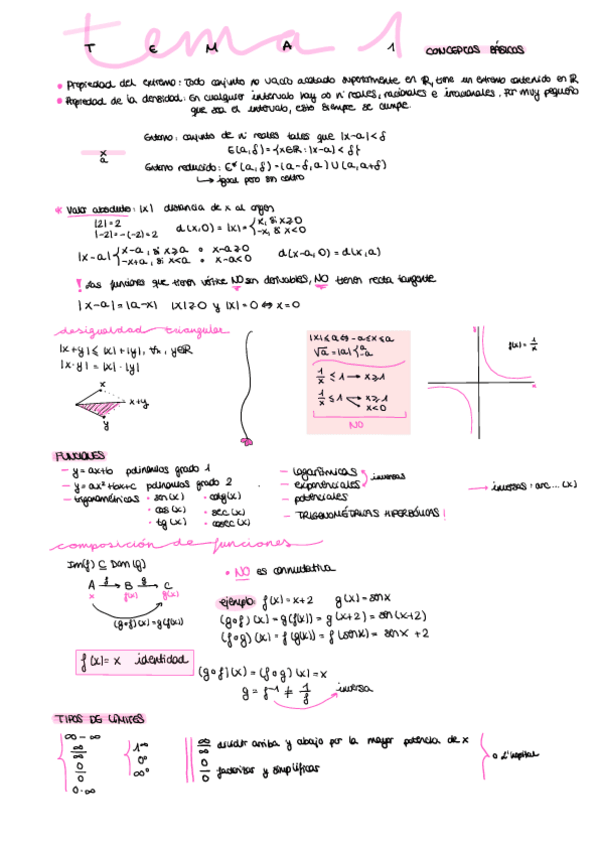 tema 1
TEMA 1 CONCEPTOS BÁSICOS
• Propiedad del extremo: Todo conjunto no vacío acotado superiormente en ℝ, tiene un extremo contenido en ℝ
• Propiedad de la densidad: En cualquier intervalo hay ∞ nº reales, racionales e irracionales. Por muy pequeño
que sea el intervalo, esto siempre se cumple.
Entorno: conjunto de nº reales tales que |x-a|<δ
E(a,δ)={x∈ℝ: |x-a|<δ}
x
a
Entorno reducido: E*(a,δ)=(a-δ,a)∪(a,a+δ)
↳ igual pero sin centro
* Valor absoluto: |x| distancia de x al origen
|2|=2
|-2|=-(-2)=2
d(x,0)=|x|={x, si x≥0
-x, si x<0
|x-a|{x-a, si x≥a o x-a≥0
-x+a, si x<a o x-a<0
d(x-a,0)=d(x,a)
! Las funciones que tienen vértice NO son derivables, NO tienen recta tangente
|x-a|=|a-x| |x|≥0 y |x|=0⇔x=0
desigualdad triangular
|x+y|≤|x|+|y|, ∀x,y∈ℝ
|x·y|=|x|·|y|
x
x+y
y
|x|≤a⇔-a≤x≤a
√a=|a|{a
-a
1/x ≤1 → x≥1
1/x ≤1 → x≥1
x<0
NO
f(x)=1/x
FUNCIONES
- y=ax+b polinomios grado 1
- y=ax²+bx+c polinomios grado 2
- trigonométricas · sen(x) · cotg(x)
· cos(x) · sec(x)
· tg(x) · cosec(x)
- logarítmicas
- exponenciales
inversas
- potenciales
- TRIGONOMÉTRICAS HIPERBÓLICAS!
→ inversas: arc...(x)
composición de funciones
Im(f)⊆Dom(g)
A f→ B g→ C
x f(x) g(x)
(g∘f)(x)=g(f(x))
• NO es conmutativa
ejemplo: f(x)=x+2 g(x)=senx
(g∘f)(x)=g(f(x))=g(x+2)=sen(x+2)
(f∘g)(x)=f(g(x))=f(senx)=senx+2
f(x)=x identidad
(g∘f)(x)=(f∘g)(x)=x
g=f⁻¹≠1/f inversa
TIPOS DE LÍMITES
∞-∞
∞/∞
0/0
0·∞
1^∞
0⁰
∞⁰
∞/∞ dividir arriba y abajo por la mayor potencia de x
0/0 factorizar y simplificar
o L'hopital